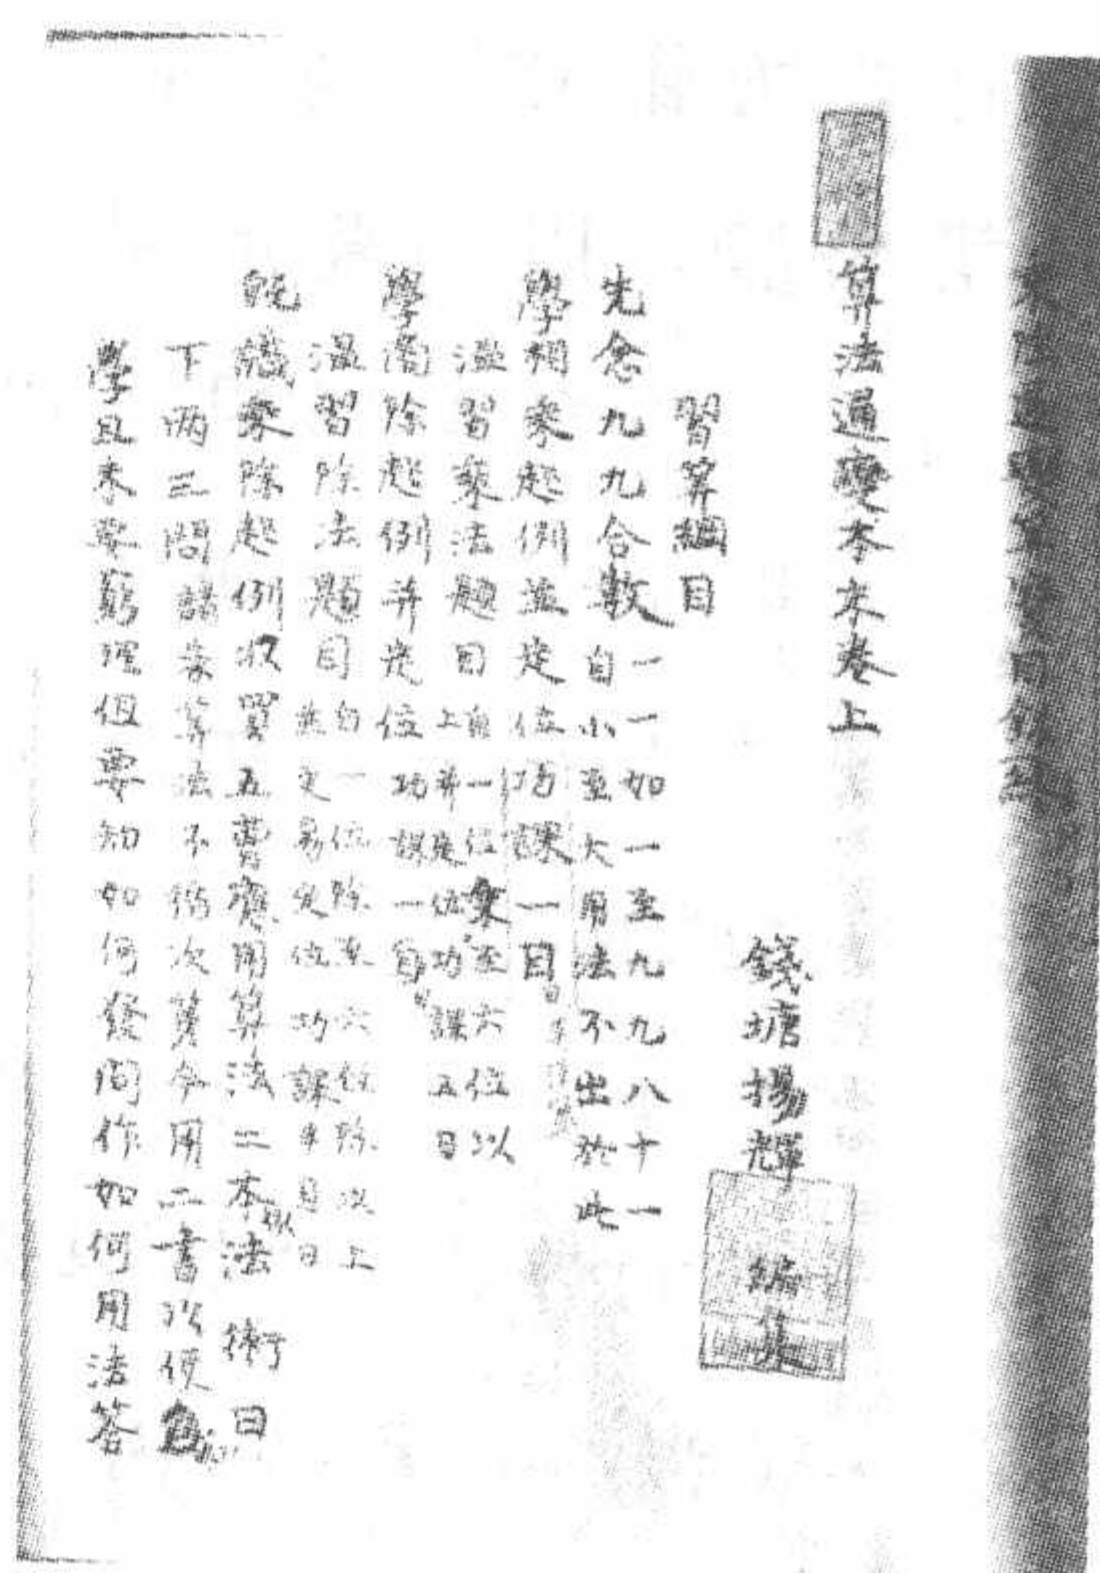 算法通變本末卷上
錢塘楊輝編集
習算綱目
先念九九合數一一如一至九九八十一
自小至大用法不出於此
學相乘起例並定位功課一日
溫習乘法題目自一位乘至六位以
上並定位功課五日
學商除起例并定位功課一日
溫習除法題目自一位除至六位除以上
更易定位功課半月日
既識乘除起例收買五曹應用算法二本依法術日
下兩三問諸家算法不循次第今用二書以便
學且未要窮理但要知如何發問作如何用法答